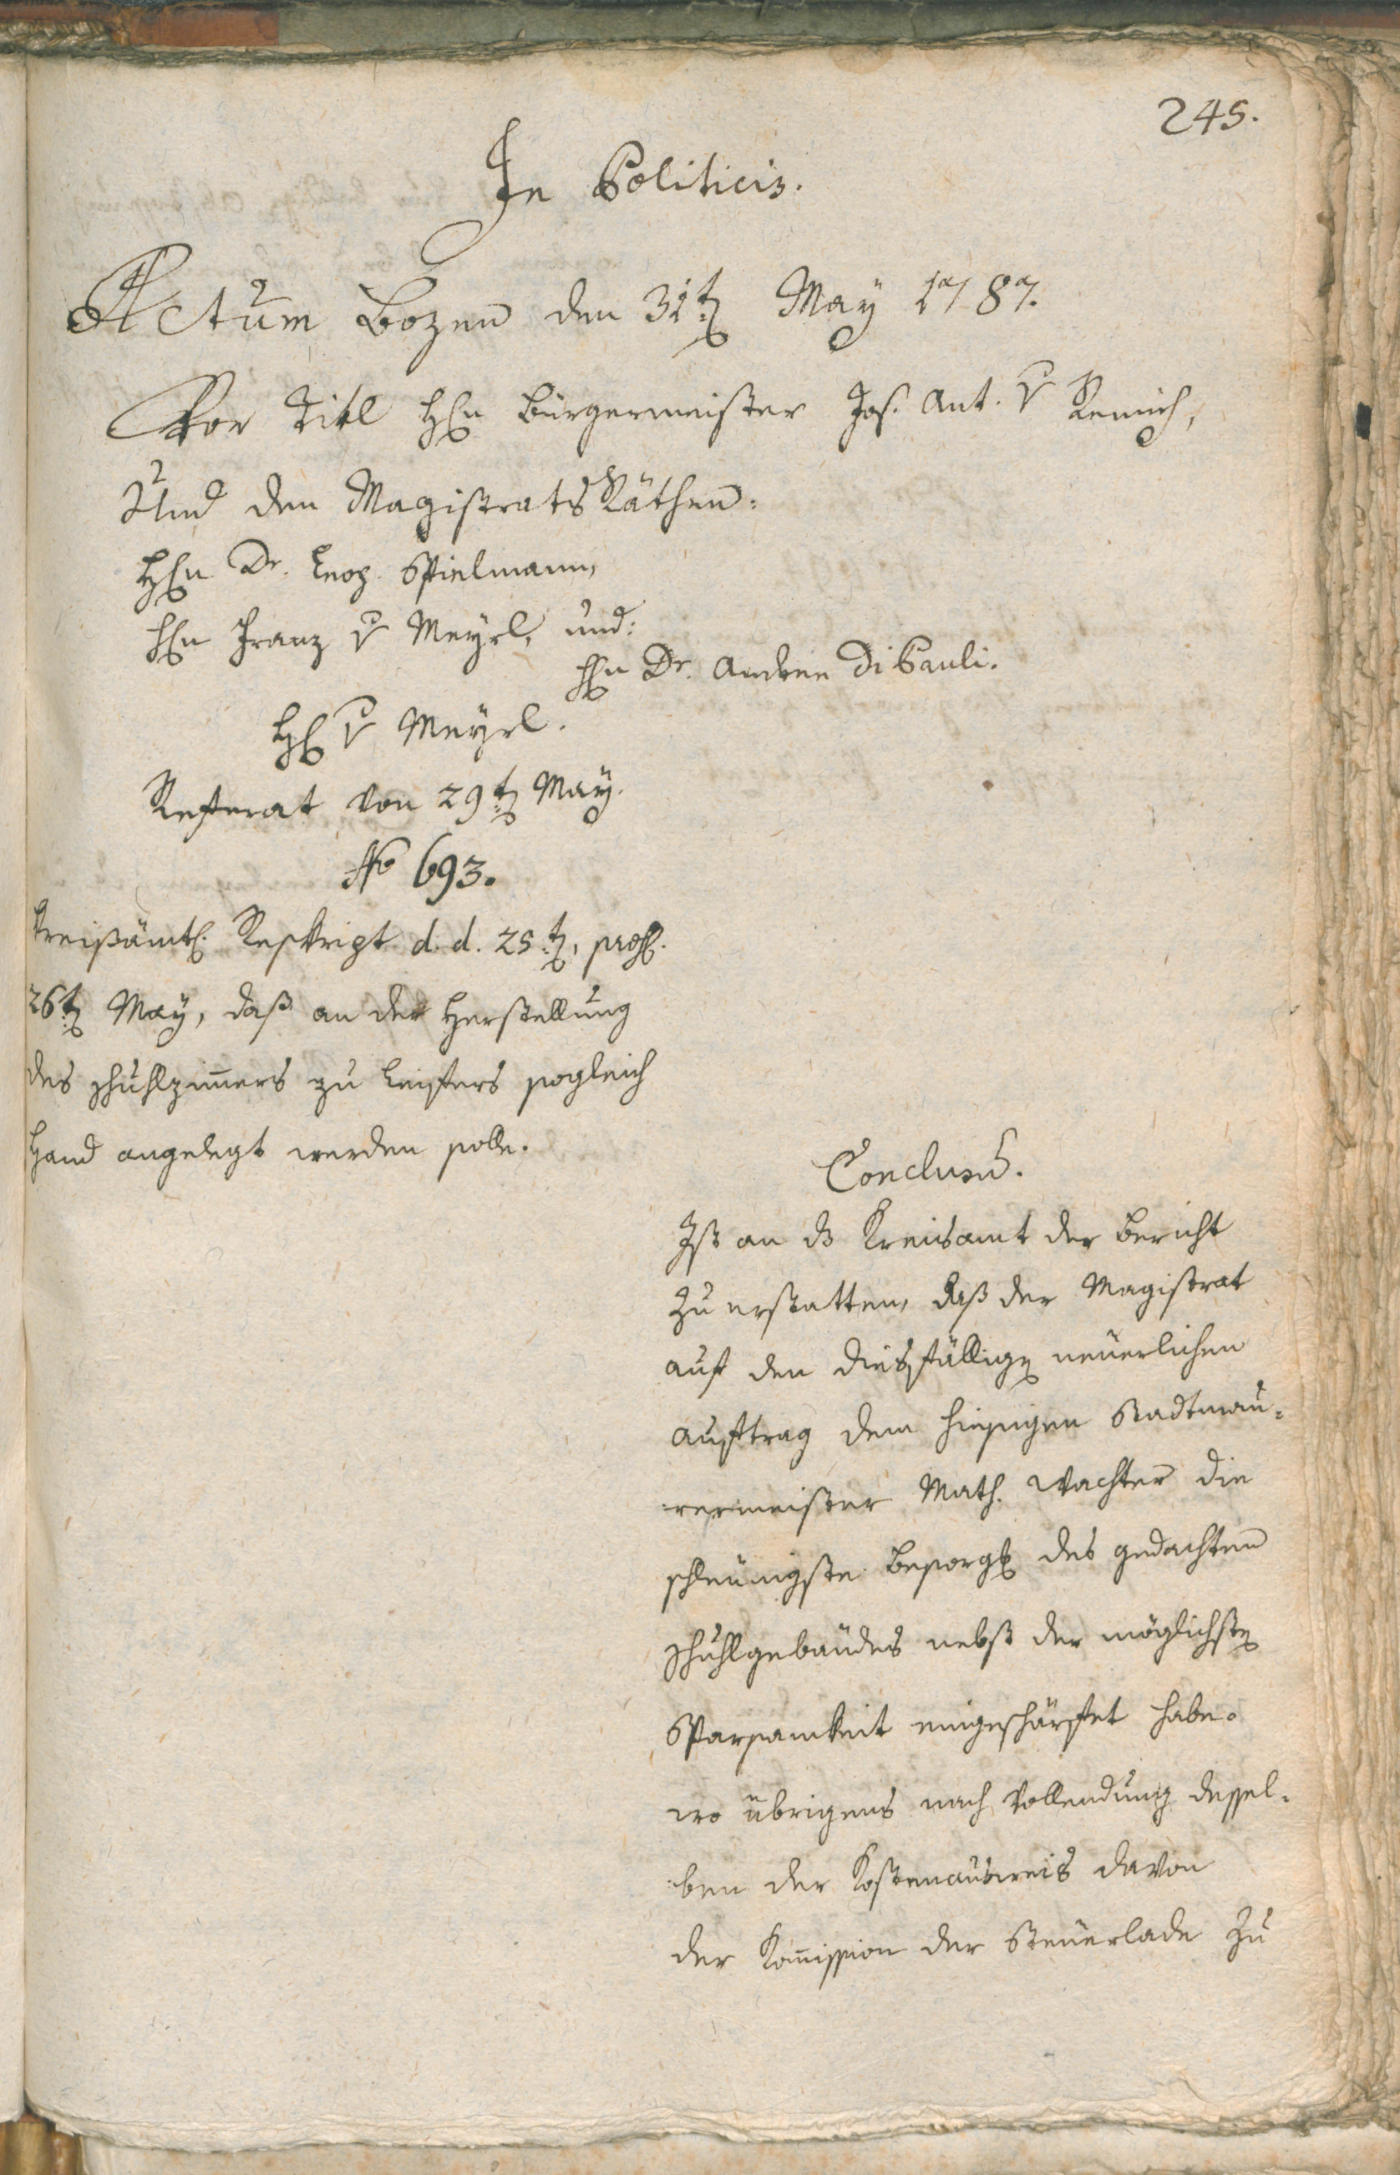 245.
In Politicis.
Actum Bozen den 31t. May 1787.
Vor Titl Hrn Bürgermeister Jos. Ant. v Remich,
Und den Magistrats Räthen:
Hrn Dr. Leop. Spielmann,
Hrn Franz v Meyrl, und:
Hrn Dr. Andree Di Pauli.
Hr v Meyrl.
Referat von 29t. May.
No 693.
Kreißämtl. Reskript d. d. 25t., præs.
26t. May, daß an der Herstellung
des Schuhlzim̄ers zu Leifers sogleich
Hand angelegt werden solle.
Conclusu.
Ist an das Kreisamt der Bericht
zu erstatten, daß der Magistrat
auf den diesfällig neuerlichen
Auftrag dem hiesigen Stadtmau-
rermeister Math. Wachter die
schleunigste Besorgg des gedachten
Schuhlgebäudes nebst der möglichste
Sparsamkeit eingeschärfet habe.
wo übrigens nach Vollendung dessel-
ben der Kostenausweis davon
der Kom̄ission der Steuerlade zu